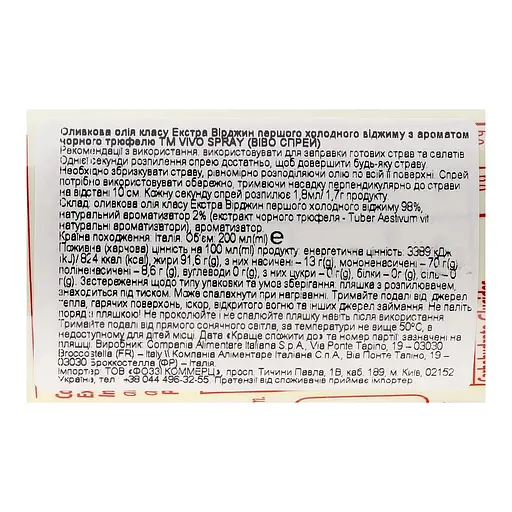 Оливкова олія класу Екстра Вірджин першого холодного віджиму з ароматом
чорного трюфелю ТМ VIVO SPRAY (ВІВО СПРЕЙ)
Рекомендації з використання: використовувати для заправки готових страв та салатів.
Однієї секунди розпилення спрею достатньо, щоб довершити будь-яку страву.
Необхідно збризкувати страву, рівномірно розподіляючи олію по всій її поверхні. Спрей
потрібно використовувати обережно, тримаючи насадку перпендикулярно до страви
на відстані 10 см. Кожну секунду спрей розпилює 1,8мл/ 1,7г продукту
Склад: оливкова олія класу Екстра Вірджин першого холодного віджиму 98%,
натуральний ароматизатор 2% (екстракт чорного трюфеля - Tuber Aestivum vit
натуральні ароматизатори), ароматизатор.
Країна походження: Італія. Об'єм: 200 мл(ml) e
Поживна (харчова) цінність на 100 мл(ml) продукту: енергетична цінність: 3389 кДж
(kJ)/ 824 ккал (kcal), жири 91,6 г(g), з них насичені – 13 г(g), мононенасичені – 70 г(g)
поліненасичені – 8,6 г(g), вуглеводи 0 г(g), з них цукри – 0г (g), білки – 0г (g), сіль – 0
г(g). Застереження щодо типу упаковки та умов зберігання: пляшка з розпилювачем,
знаходиться під тиском. Може спалахнути при нагріванні. Тримайте подалі від джерел
тепла, гарячих поверхонь, іскор, відкритого вогню та інших джерел займання. Не паліть
поряд із пляшкою! Не проколюйте і не спалюйте пляшку навіть після використання
Тримайте подалі від прямого сонячного світла, за температури не вище 50°C, в
недоступному для дітей місці. Дата «Краще спожити до» та номер партії: зазначені на
пляшці. Виробник: Compania Alimentare Italiana S.p.A., Via Ponte Tapino, 19 – 03030
Broccostella (FR) – Italy \\ Компаніа Алиментаре Італіана С.п.А., Віа Понте Тапіно, 19 –
03030 Броккостелла (ФР) – Італія
Імпортер: ТОВ «ФОЗЗІ КОММЕРЦ», просп. Тичини Павла, 1В, каб. 189, м. Київ, 02152
Україна, тел.: +38 044 496-32-55. Претензії від споживачів приймає імпортер